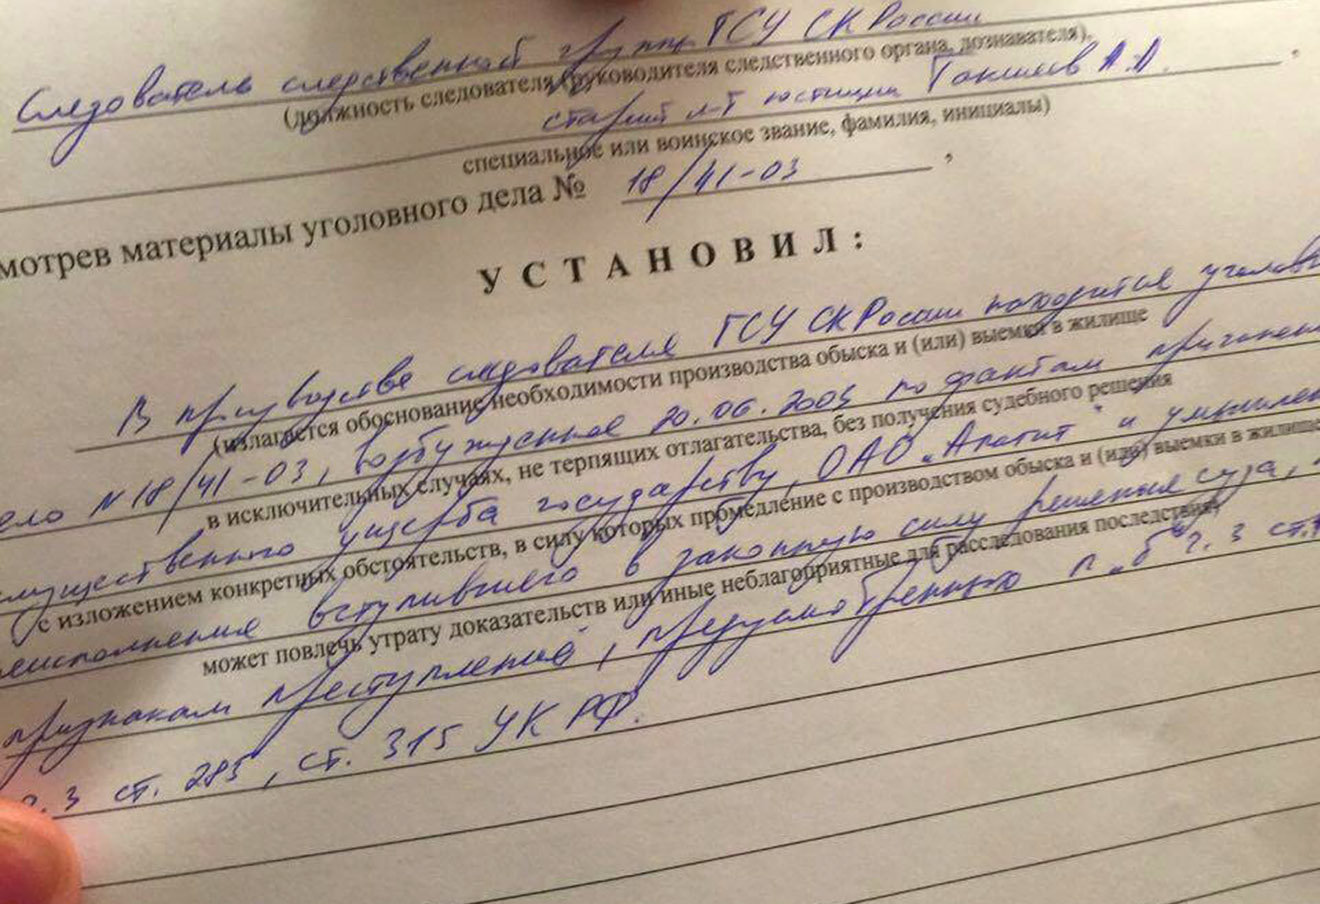 Следователь следственной группы ГСУ СК России
(должность следователя (руководителя следственного органа, дознавателя),
старший л-т юстиции А.А.
специальное или воинское звание, фамилия, инициалы)
мотрев материалы уголовного дела № 18/41-03,
УСТАНОВИЛ:
В производстве следователя ГСУ СК России находится уголовн
(излагается обоснование необходимости производства обыска и (или) выемки в жилище
ело N 18/41-03, возбужденное 20.06.2003 по фактам причинени
в исключительных случаях, не терпящих отлагательства, без получения судебного решения
мущественного ущерба государству, ОАО „Апатит" и умышлен
с изложением конкретных обстоятельств, в силу которых промедление с производством обыска и (или) выемки в жилище
неисполнения вступившего в законную силу решения суда,
может повлечь утрату доказательств или иные неблагоприятные для расследования последствия)
признакам преступлений, предусмотренных п. „б" ч. 3 ст.
ч. 3 ст. 285, ст. 315 УК РФ.